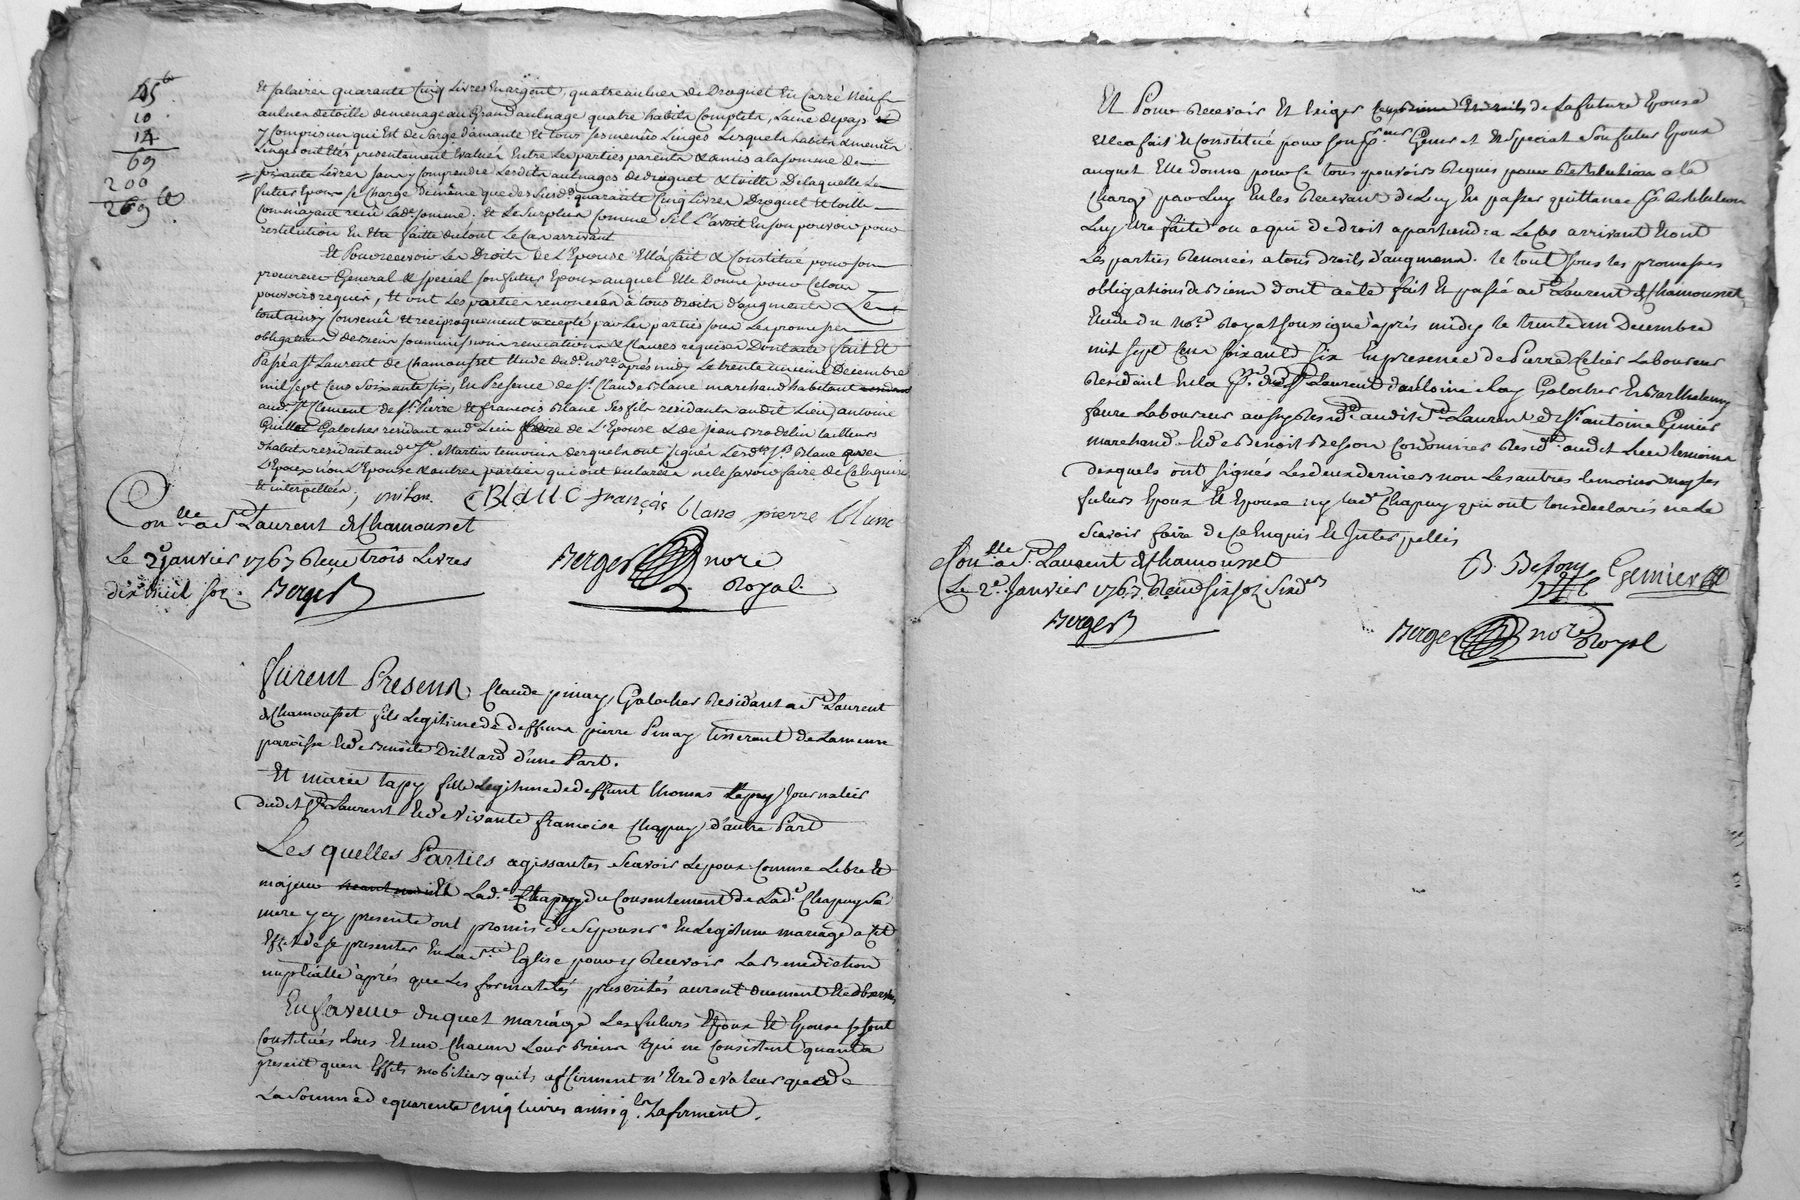 45ᵗᵗ
10.
14
69
200
269ᵗᵗ
Et salaires quarante Cinq Livres En argent, quatre aulnes de Droguet En Carré Neuf
aulnes de toille de menage au Grand aulnage quatre habits Complets, Laine depays
y Compris un qui Est de Sarge d'amante Et tous ses menûs Linges Lesquels habits & menûs
Linges ont Etés presentement Evalués Entre Les parties parents & amis a la somme de
soixante Livres sans y Comprendre Lesdits aulnages de droguet & toille De laquelle Le
futur Epoux se Charge de même que des Susd. quarante Cinq Livres Droguet Et toille
Comme ayant reçu Lad. somme. Et Le Surplus Comme S'il L'avoit En son pouvoir pour
restitution En Etre faitte du tout Le Cas arrivant
Et Pour recevoir Les Droits de L'Epouse Ella fait & Constitué pour son
procureur General & special Son futur Epoux auquel Elle Donne pour Ce tous
pouvoirs requis, Et ont Les parties renoncées à tous droits d'augments Le
tout ainsy Convenû Et reciproquement accepté par Les parties sous Les promesses
obligations de biens soumissions renonciations & Clauses requises Dont acte fait Et
Passé a St Laurent de Chamousset Etude dud. nore. après midy Le trente unieme Decembre
mil sept Cens Soixante six, En Presence de Sr. Claude Blanc marchand habitant
aud. St Clement de St. Pierre Et francois Blanc Ses fils residants audit Lieu, antoine
Guillot Galocher residant aud. Lieu de L'Epouse & de jean Brodelin tailleur
d'habits residant aud. St. Martin temoins desquels ont signés Lesdts Srs Blanc avec
L'Epoux non L'Epouse & autres parties qui ont declarées ne le Savoir faire de Ce Enquis
Et interpellés,
CBlanc françois blanc pierre blanc
Conlle. a St Laurent de Chamousset
Le 2e janvier 1767 Reçu trois Livres
dix huit sols. Berger
Berger nore
Royal.
Furent Presents Claude pinay Galocher Residant a St Laurent
de Chamousset fils Legitime de deffunt pierre Pinay tisserant de La meme
paroisse Et de Benoite Drillard d'une Part.
Et marie tapy fille Legitime de deffunt thomas tapy Journalier
dudit St Laurent Et de Vivante francoise Chapuy d'autre Part
Les quelles Parties agissantes scavoir L'epoux Comme Libre Et
majeur Et Lad. Chapuy du Consentement de Lad. Chapuy sa
mere y cy presente ont promis de s'Epouser En Legitime mariage a Cet
Effet de se presenter En La Ste Eglise pour y Recevoir La Benediction
nuptialle après que Les formalités prescrites auront duement Eté observées
En faveur duquel mariage Les futurs Epoux Et Epouse se sont
Constitués Eux Et un Chacun Leurs Biens qui ne Consistent quant a
present qu'en Effets mobiliers quils affirment n'Etre de valeur que de
La Somme de quarente cinq Livres ainsi qls Lafirment.
Et Pour Recevoir Et Exiger Les Biens Et droits de La future Epouse
Elle a fait Et Constitué pour son Général et Special Son futur Epoux
auquel Elle donne pour Ce tous pouvoirs Requis pour Restitution a la
Charge par Luy En les Recevant de Luy En passer quittance Restitution
Luy Etre faite ou a qui de droit apartiendra Le Cas arrivant Et ont
Les parties Renoncées a tous droits d'augment. Le tout sous les promesses
obligations de Biens dont acte fait Et passé a St Laurent de Chamousset
Etude du Nore. Royal soussigné après midy Le trente un Decembre
mil sept Cens soixante Six En presence de Pierre Celier Laboureur
Residant En La Psse. dud. St Laurent d'antoine Galocher Et Barthelemy
faure Laboureur aussy Resid. audit St Laurent de Sr. antoine Genier
marchand Et de Benoit Besson Cordonnier Resid. audit Lieu temoins
desquels ont signés Les deux derniers non Les autres temoins ny les
futurs Epoux Et Epouse ny lad. Chapuy qui ont tous declarés ne le
Scavoir faire de Ce Enquis Et Interpellés
Conlle. a St. Laurent de Chamousset
Le 2e. Janvier 1767. Reçu six sols Six ders
Berger
B. Besson Genier
Berger nore Royal